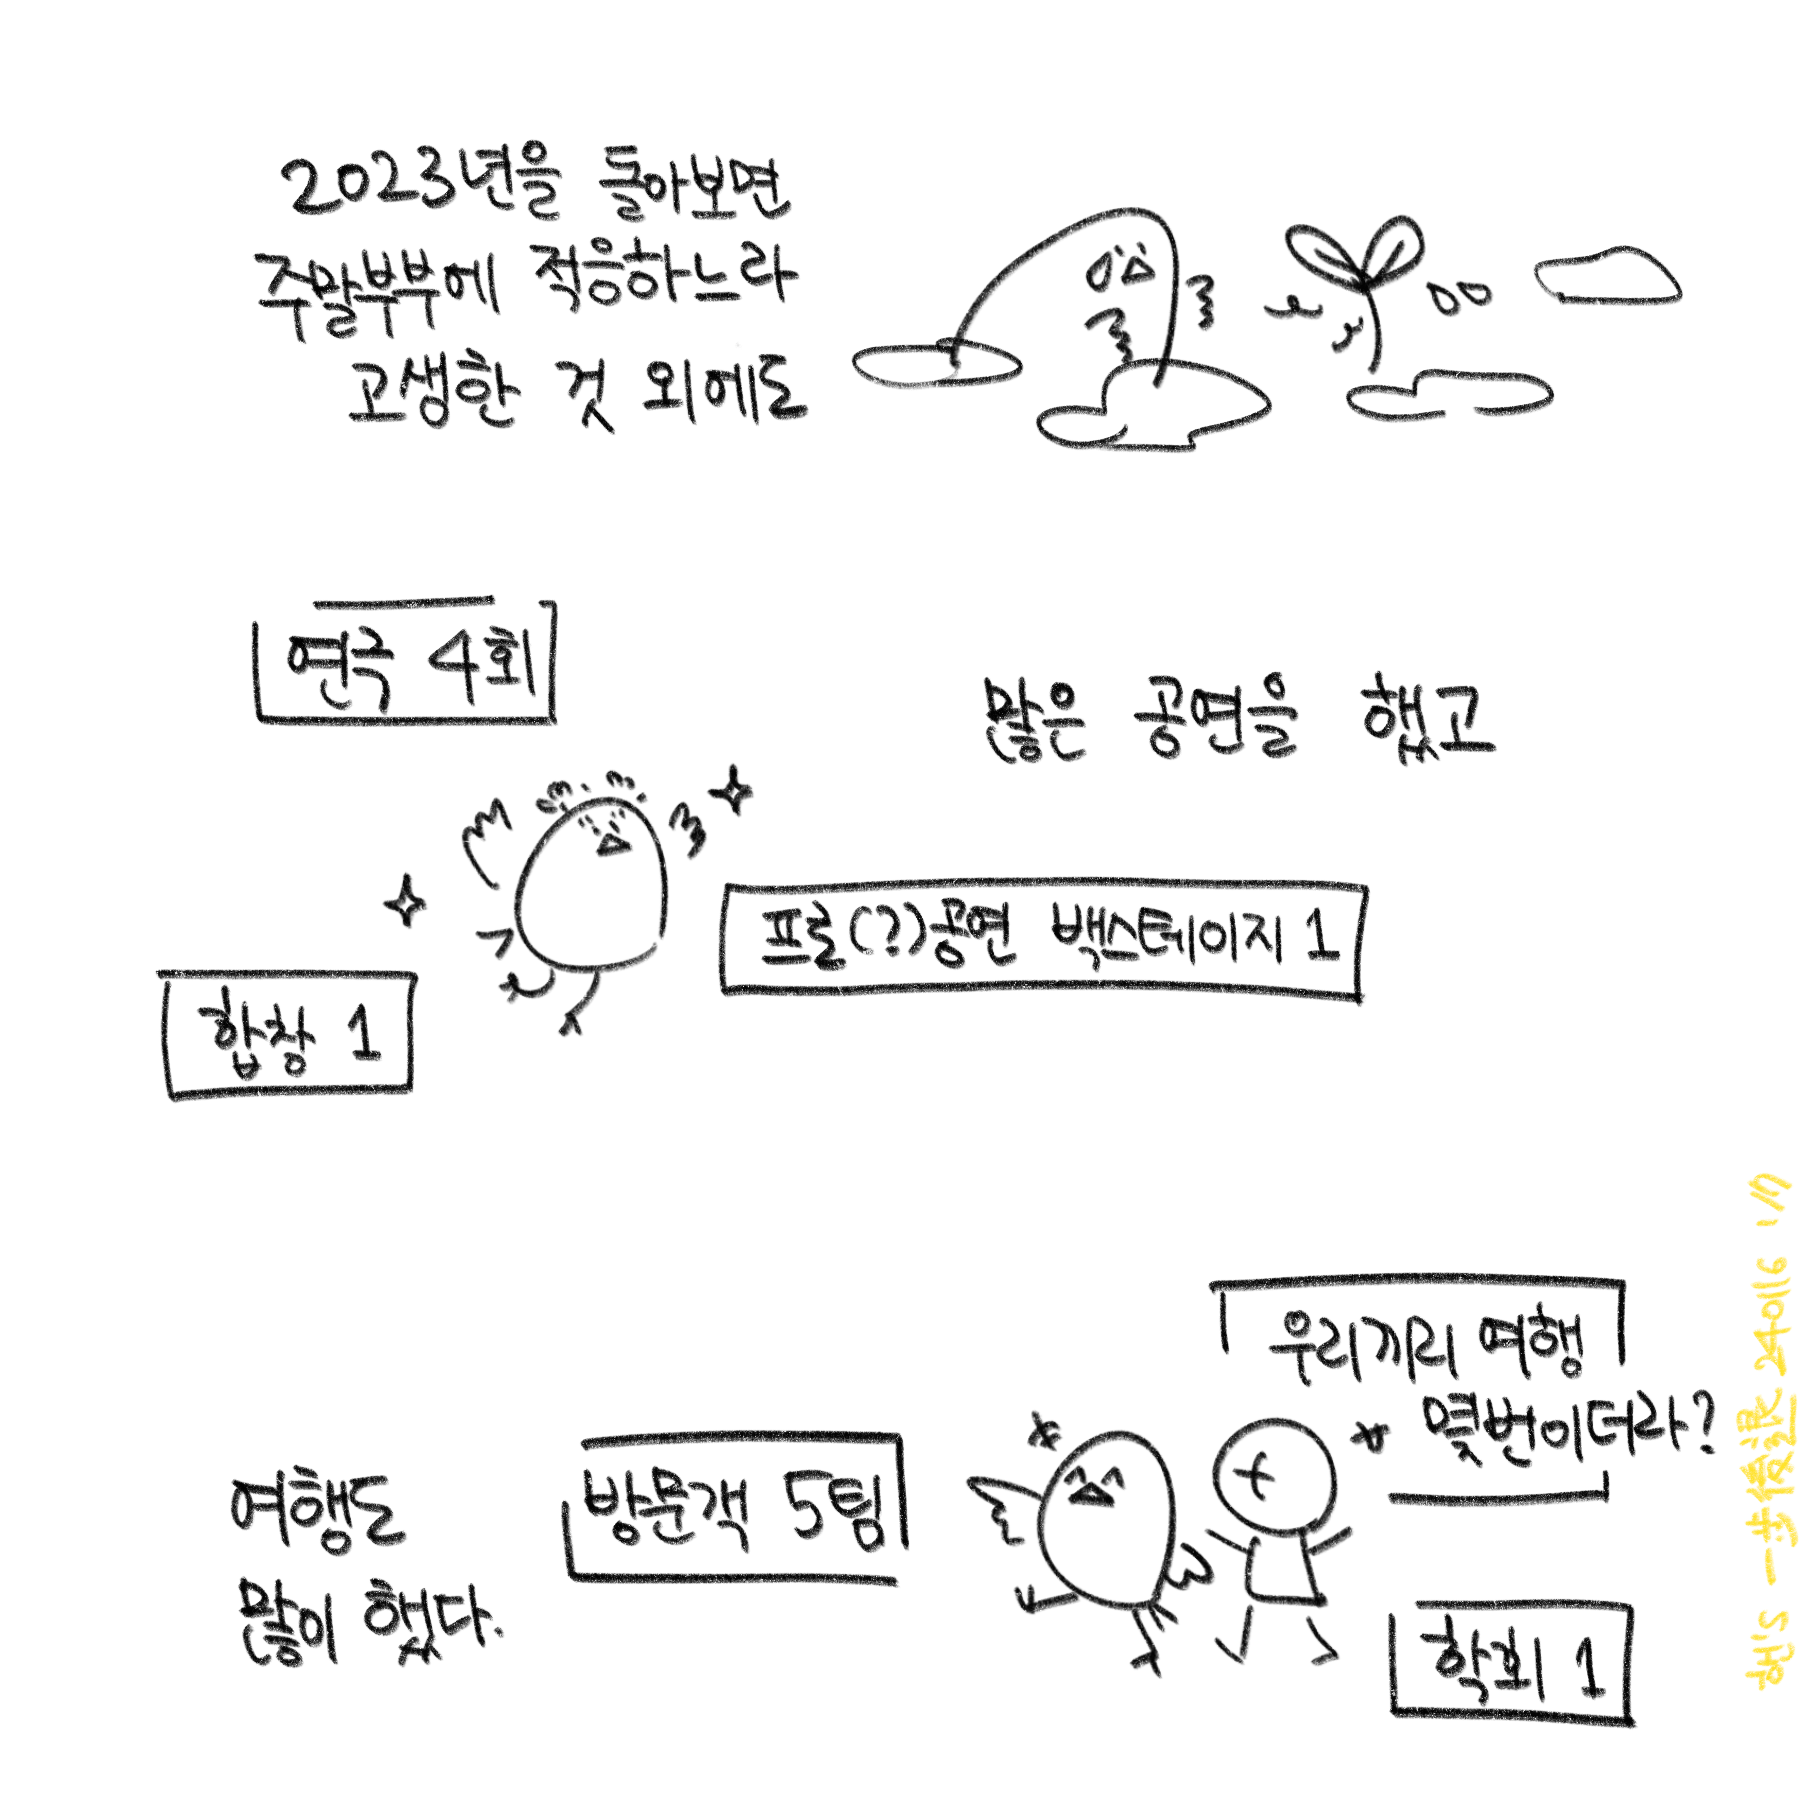 2023년을 돌아보면
주말부부에 적응하느라
고생한 것 외에도
연극 4회
많은 공연을 했고
프로(?)공연 백스테이지 1
합창 1
우리끼리 여행
몇번이더라?
여행도
많이 했다.
방문객 5팀
학회 1
헌's 一步後退 240116